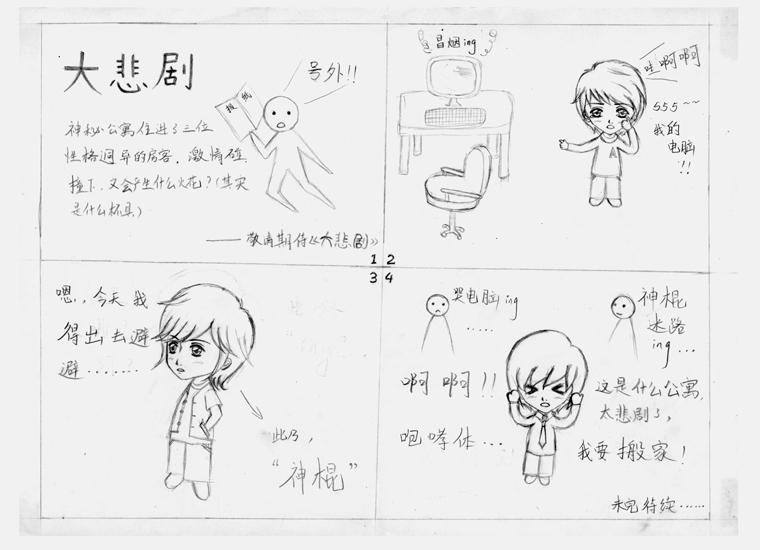 大悲剧
报纸
号外!!
神秘公寓住进了三位
性格迥异的房客，激情碰
撞下，又会产生什么火花？(其实
是什么杯具)
——敬请期待《大悲剧》
1 2
3 4
冒烟ing
哇啊啊
555~~
我的
电脑
!!
A
嗯，今天我
得出去避
避……
此乃，
“神棍”
哭电脑ing
……
神棍
迷路
ing...
啊啊!!
咆哮体...
这是什么公寓，
太悲剧了，
我要搬家!
未完待续……